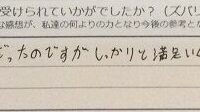 受けられていかがでしたか？（ズバリ
な感想が、私達の何よりの力となり今後の参考とな
だったのですが しっかりと満足い